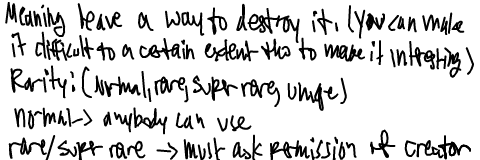 Meaning leave a way to destroy it. (You can make
it difficult to a certain extent tho to make it interesting)
Rarity: (normal, rare, super rare, unique)
normal -> anybody can use
rare/super rare -> must ask permission of creator